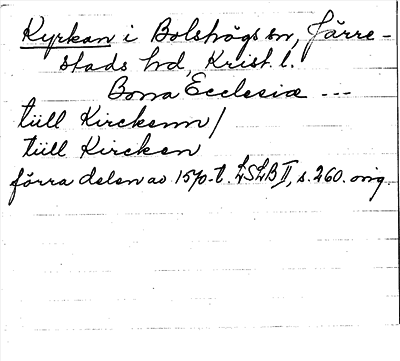 Kyrkan i Bolshögs sn, Järre-
stads hd, Krist. l.
Bona Ecclesiæ ---
tiill Kirckenn/
tiill Kircken
förra delen av 1570-t. LSLB II, s. 260. orig.